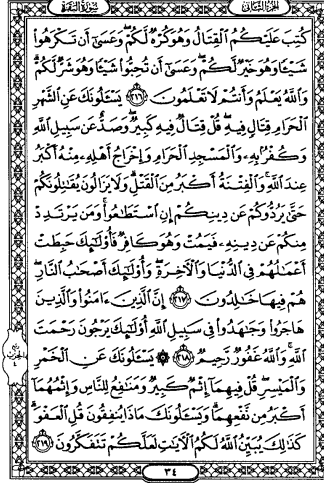 الجزء الثاني
سورة البقرة
كُتِبَ عَلَيْكُمُ ٱلْقِتَالُ وَهُوَ كُرْهٌ لَّكُمْ وَعَسَىٰٓ أَن تَكْرَهُوا۟
شَيْـًٔا وَهُوَ خَيْرٌ لَّكُمْ وَعَسَىٰٓ أَن تُحِبُّوا۟ شَيْـًٔا وَهُوَ شَرٌّ لَّكُمْ
وَٱللَّهُ يَعْلَمُ وَأَنتُمْ لَا تَعْلَمُونَ ٢١٦ يَسْـَٔلُونَكَ عَنِ ٱلشَّهْرِ
ٱلْحَرَامِ قِتَالٍ فِيهِ قُلْ قِتَالٌ فِيهِ كَبِيرٌ وَصَدٌّ عَن سَبِيلِ ٱللَّهِ
وَكُفْرٌۢ بِهِۦ وَٱلْمَسْجِدِ ٱلْحَرَامِ وَإِخْرَاجُ أَهْلِهِۦ مِنْهُ أَكْبَرُ
عِندَ ٱللَّهِ وَٱلْفِتْنَةُ أَكْبَرُ مِنَ ٱلْقَتْلِ وَلَا يَزَالُونَ يُقَـٰتِلُونَكُمْ
حَتَّىٰ يَرُدُّوكُمْ عَن دِينِكُمْ إِنِ ٱسْتَطَـٰعُوا۟ وَمَن يَرْتَدِدْ
مِنكُمْ عَن دِينِهِۦ فَيَمُتْ وَهُوَ كَافِرٌ فَأُو۟لَـٰٓئِكَ حَبِطَتْ
أَعْمَـٰلُهُمْ فِى ٱلدُّنْيَا وَٱلْـَٔاخِرَةِ وَأُو۟لَـٰٓئِكَ أَصْحَـٰبُ ٱلنَّارِ
هُمْ فِيهَا خَـٰلِدُونَ ٢١٧ إِنَّ ٱلَّذِينَ ءَامَنُوا۟ وَٱلَّذِينَ
هَاجَرُوا۟ وَجَـٰهَدُوا۟ فِى سَبِيلِ ٱللَّهِ أُو۟لَـٰٓئِكَ يَرْجُونَ رَحْمَتَ
ٱللَّهِ وَٱللَّهُ غَفُورٌ رَّحِيمٌ ٢١٨ ۞ يَسْـَٔلُونَكَ عَنِ ٱلْخَمْرِ
وَٱلْمَيْسِرِ قُلْ فِيهِمَآ إِثْمٌ كَبِيرٌ وَمَنَـٰفِعُ لِلنَّاسِ وَإِثْمُهُمَآ
أَكْبَرُ مِن نَّفْعِهِمَا وَيَسْـَٔلُونَكَ مَاذَا يُنفِقُونَ قُلِ ٱلْعَفْوَ
كَذَٰلِكَ يُبَيِّنُ ٱللَّهُ لَكُمُ ٱلْـَٔايَـٰتِ لَعَلَّكُمْ تَتَفَكَّرُونَ ٢١٩
٣٤